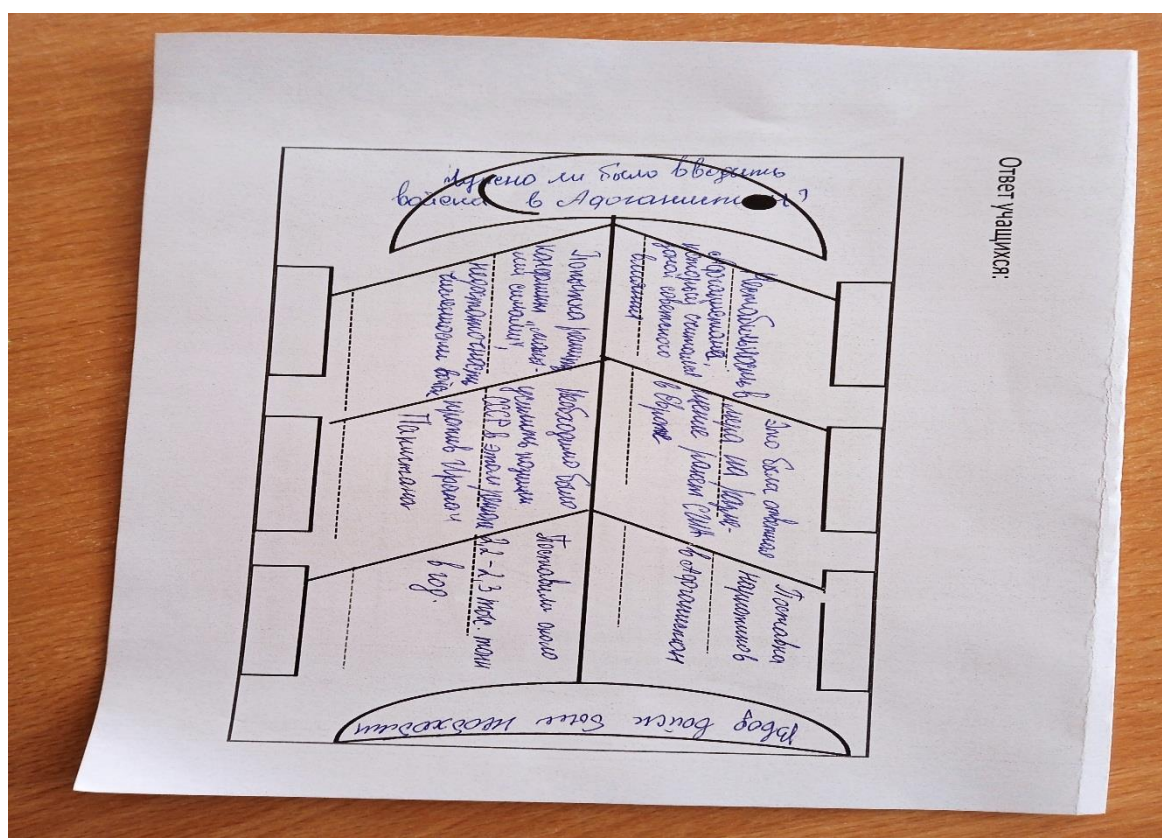 Ответ учащихся:
Нужно ли было вводить
войска в Афганистан?
Нестабильность в
Афганистане,
который считался
зоной советского
влияния
Это была ответная
мера на разме-
щение ракет США
в Европе
Поставка
наркотиков
в Афганистан
Попытка решить
конфликт "малы-
ми силами",
недостаточность
численности войск
Необходимо было
усилить позиции
СССР в этом регионе
против Ирана и
Пакистана
Поставили около
2,2-2,3 тыс. тонн
в год.
Ввод войск был необходим